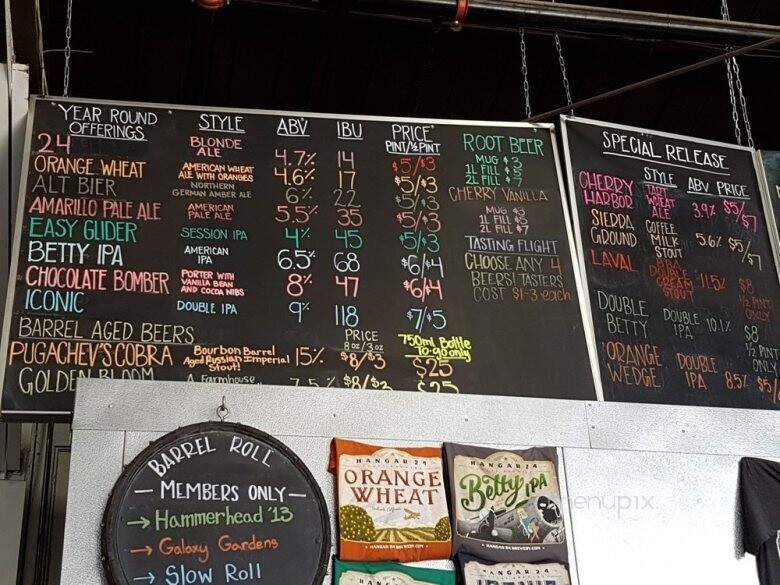 YEAR ROUND OFFERINGS STYLE ABV IBU PRICE PINT/½PINT
24 BLONDE ALE 4.7% 14 $5/$3
ORANGE WHEAT AMERICAN WHEAT ALE WITH ORANGES 4.6% 17 $5/$3
ALT BIER NORTHERN GERMAN AMBER ALE 6% 22 $5/$3
AMARILLO PALE ALE AMERICAN PALE ALE 5.5% 35 $5/$3
EASY GLIDER SESSION IPA 4% 45 $5/$3
BETTY IPA AMERICAN IPA 6.5% 68 $6/$4
CHOCOLATE BOMBER PORTER WITH VANILLA BEAN AND COCOA NIBS 8% 47 $6/$4
ICONIC DOUBLE IPA 9% 118 $7/$5
BARREL AGED BEERS PRICE 8oz/3oz 750ml Bottle To-go only
PUGACHEV'S COBRA Bourbon Barrel Aged Russian Imperial Stout! 15% $8/$3 $25
GOLDEN BLOOM A Farmhouse 7.5% $8/$3 $25
ROOT BEER
MUG $3
1L FILL $5
2L FILL $7
CHERRY VANILLA
MUG $3
1L FILL $5
2L FILL $7
TASTING FLIGHT
CHOOSE ANY 4
BEERS! TASTERS
COST $1-3 each
SPECIAL RELEASE
STYLE ABV PRICE
CHERRY HARBOR TART WHEAT ALE 3.9% $5/$7
SIERRA GROUND COFFEE MILK STOUT 5.6% $5/$7
LAVAL DOUBLE CREAM STOUT 11.5% $8 ½ PINT ONLY
DOUBLE BETTY DOUBLE IPA 10.1% $8 ½ PINT ONLY
ORANGE WEDGE DOUBLE IPA 8.5% $5/
BARREL ROLL
— MEMBERS ONLY —
→ Hammerhead '13
→ Galaxy Gardens
→ Slow Roll
HANGAR 24
ORANGE
WHEAT
HANGAR 24 BREWERY.COM
HANGAR 24
Betty IPA
HANGAR 24 BREWERY.COM
HANGAR 24
menupix